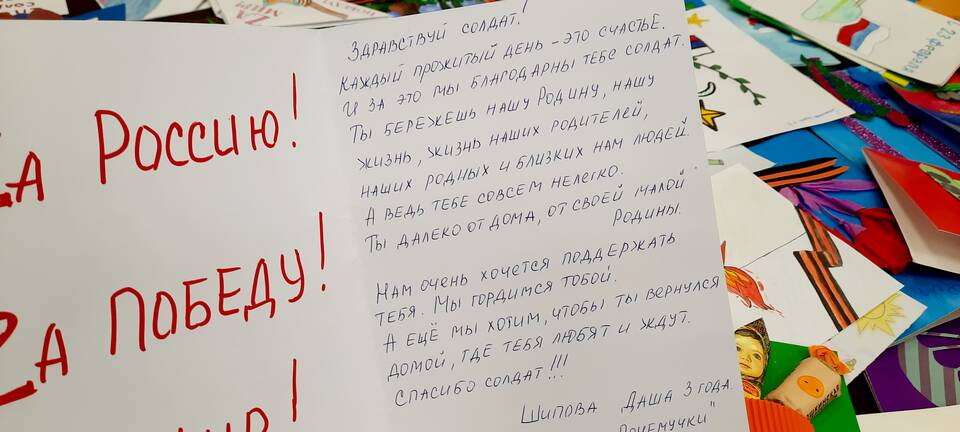 ZA Россию!
ZA ПОБЕДУ!
ЗДРАВСТВУЙ СОЛДАТ!
КАЖДЫЙ ПРОЖИТЫЙ ДЕНЬ – ЭТО СЧАСТЬЕ.
И ЗА ЭТО МЫ БЛАГОДАРНЫ ТЕБЕ СОЛДАТ.
ТЫ БЕРЕЖЕШЬ НАШУ РОДИНУ, НАШУ
ЖИЗНЬ, ЖИЗНЬ НАШИХ РОДИТЕЛЕЙ,
НАШИХ РОДНЫХ И БЛИЗКИХ НАМ ЛЮДЕЙ.
А ВЕДЬ ТЕБЕ СОВСЕМ НЕЛЕГКО.
ТЫ ДАЛЕКО ОТ ДОМА, ОТ СВОЕЙ МАЛОЙ
РОДИНЫ.
НАМ ОЧЕНЬ ХОЧЕТСЯ ПОДДЕРЖАТЬ
ТЕБЯ. МЫ ГОРДИМСЯ ТОБОЙ.
А ЕЩЁ МЫ ХОТИМ, ЧТОБЫ ТЫ ВЕРНУЛСЯ
ДОМОЙ, ГДЕ ТЕБЯ ЛЮБЯТ И ЖДУТ.
СПАСИБО СОЛДАТ!!!
ШИПОВА ДАША 3 ГОДА.
ПОЧЕМУЧКИ"
23 февраля